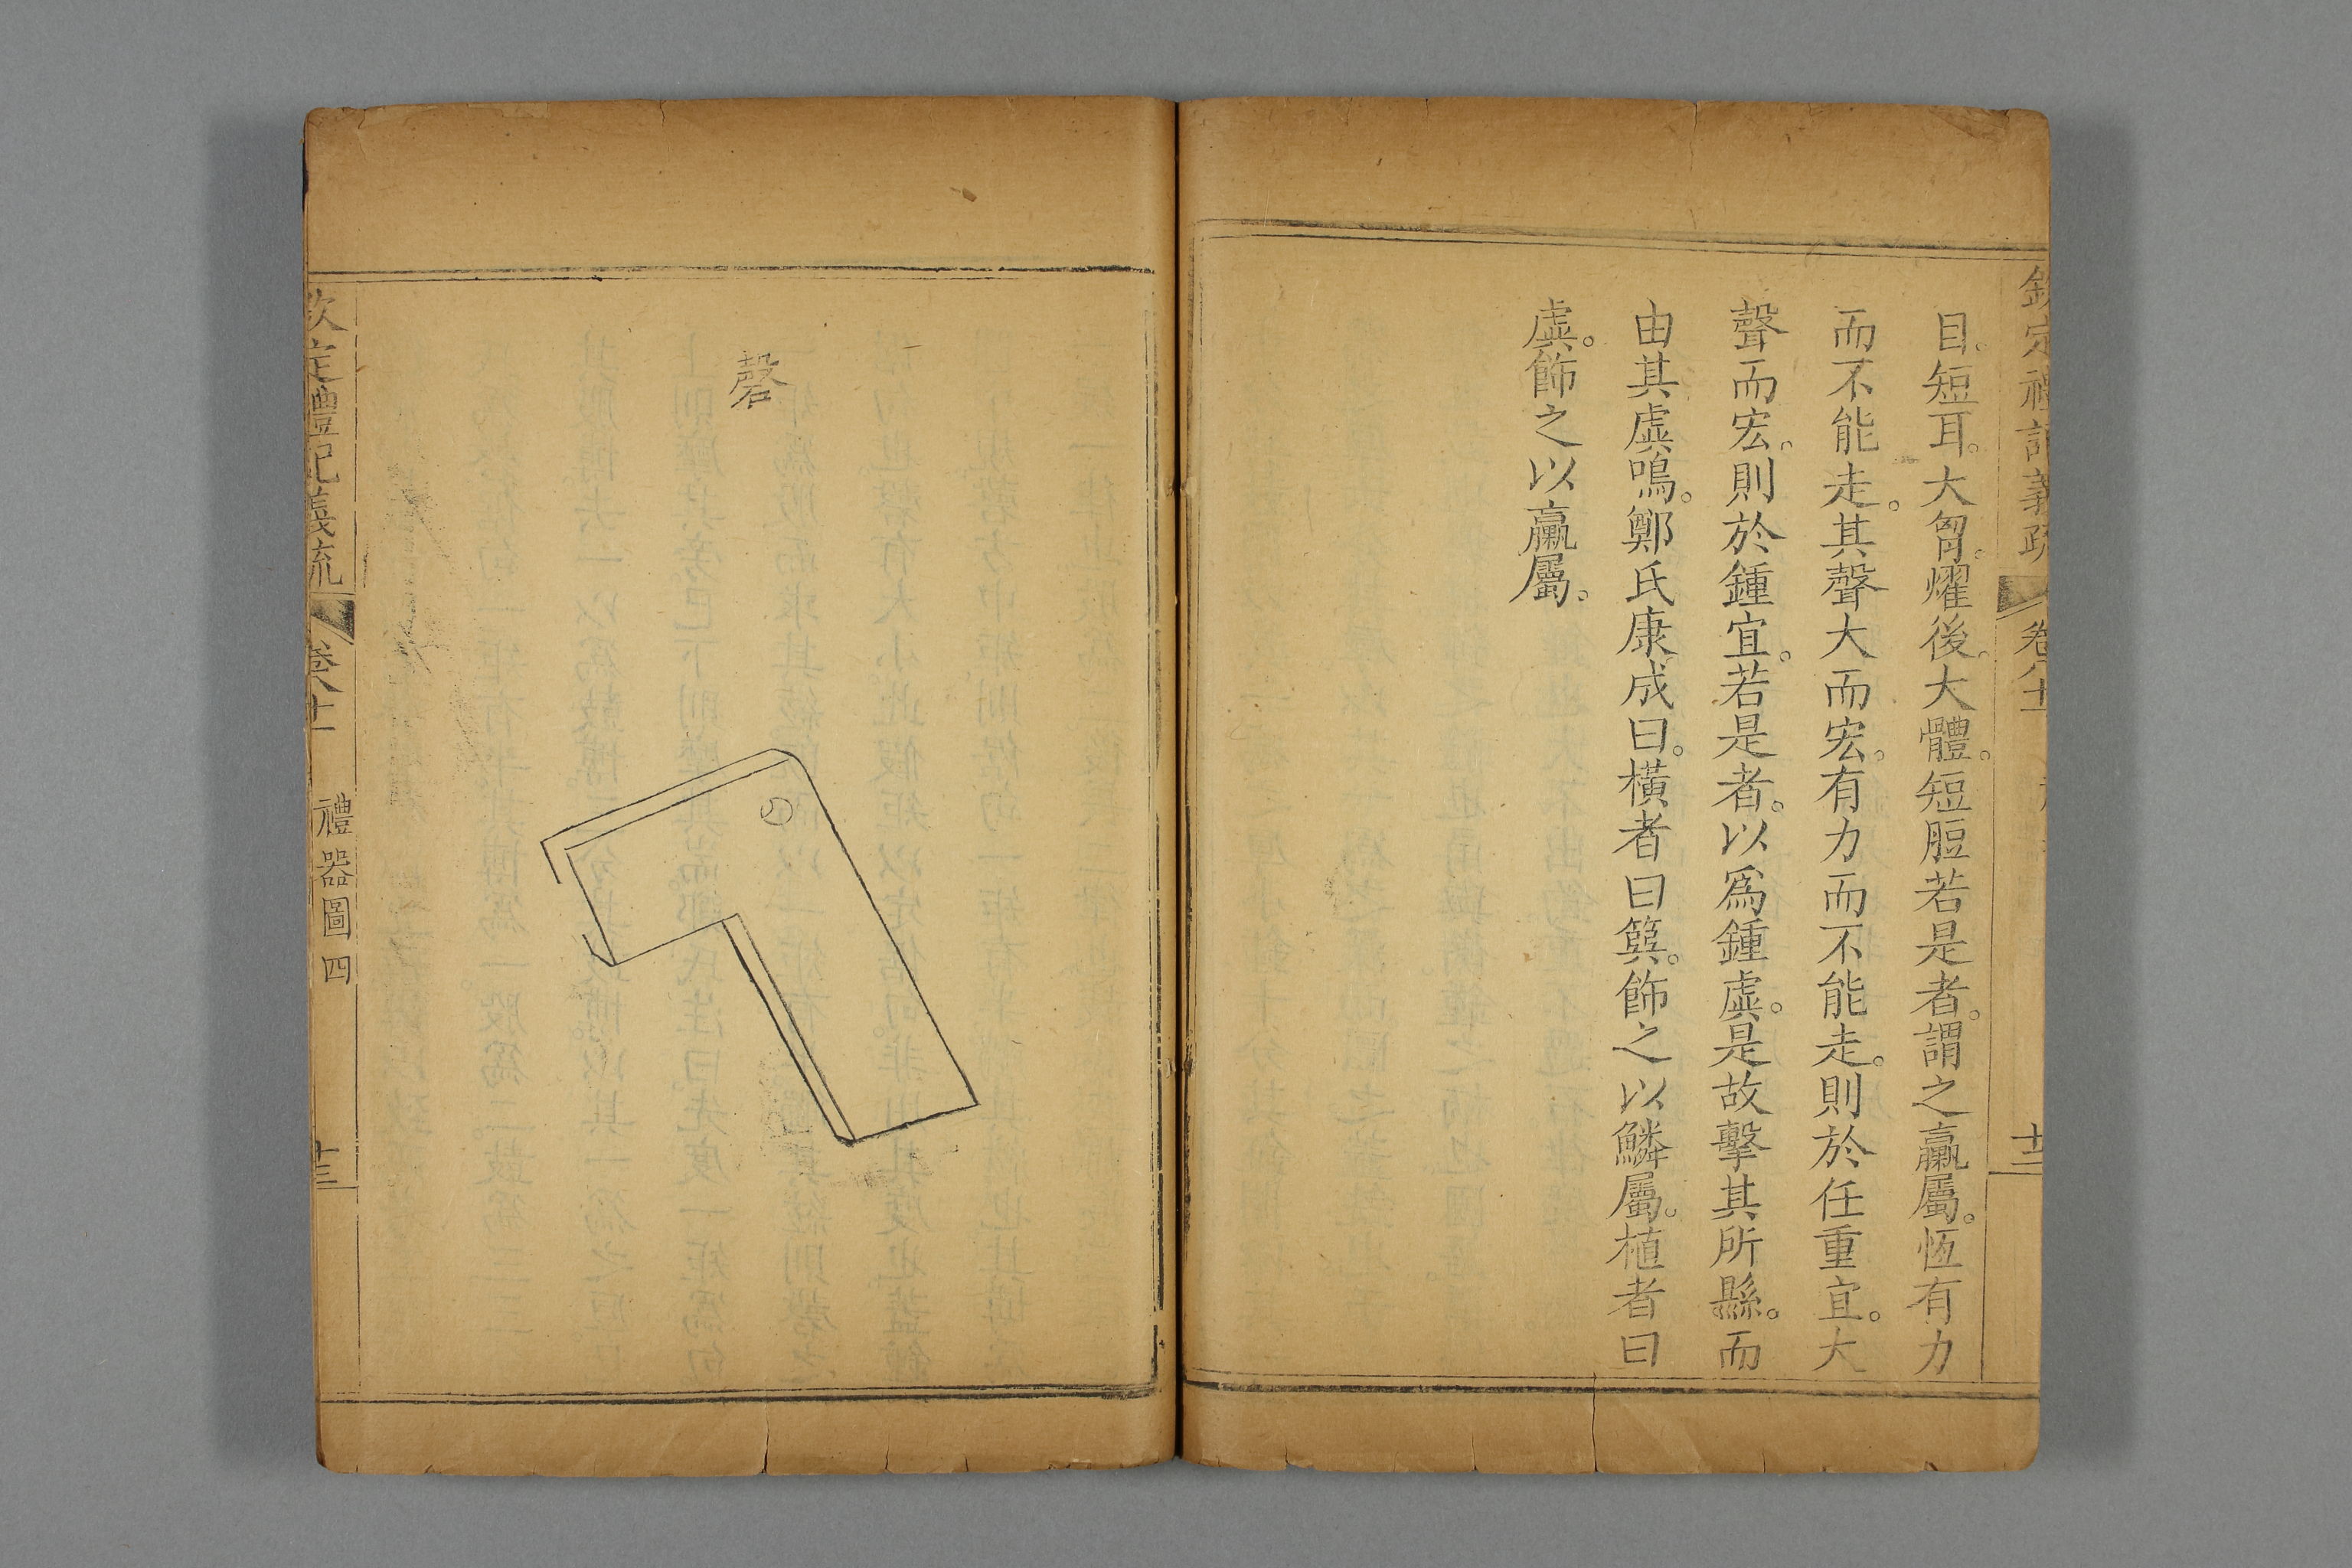 欽定禮記義疏 卷八十一 十二
目短耳。大胷。燿後。大體。短脰若是者。謂之臝屬。恆有力
而不能走。其聲大而宏。有力而不能走。則於任重宜。大
聲而宏。則於鍾宜。若是者。以爲鍾虡。是故擊其所縣。而
由其虡鳴。鄭氏康成曰。橫者曰筍。飾之以鱗屬。植者曰
虡。飾之以臝屬。
磬
欽定禮記義疏 卷八十一 禮器圖四 十三